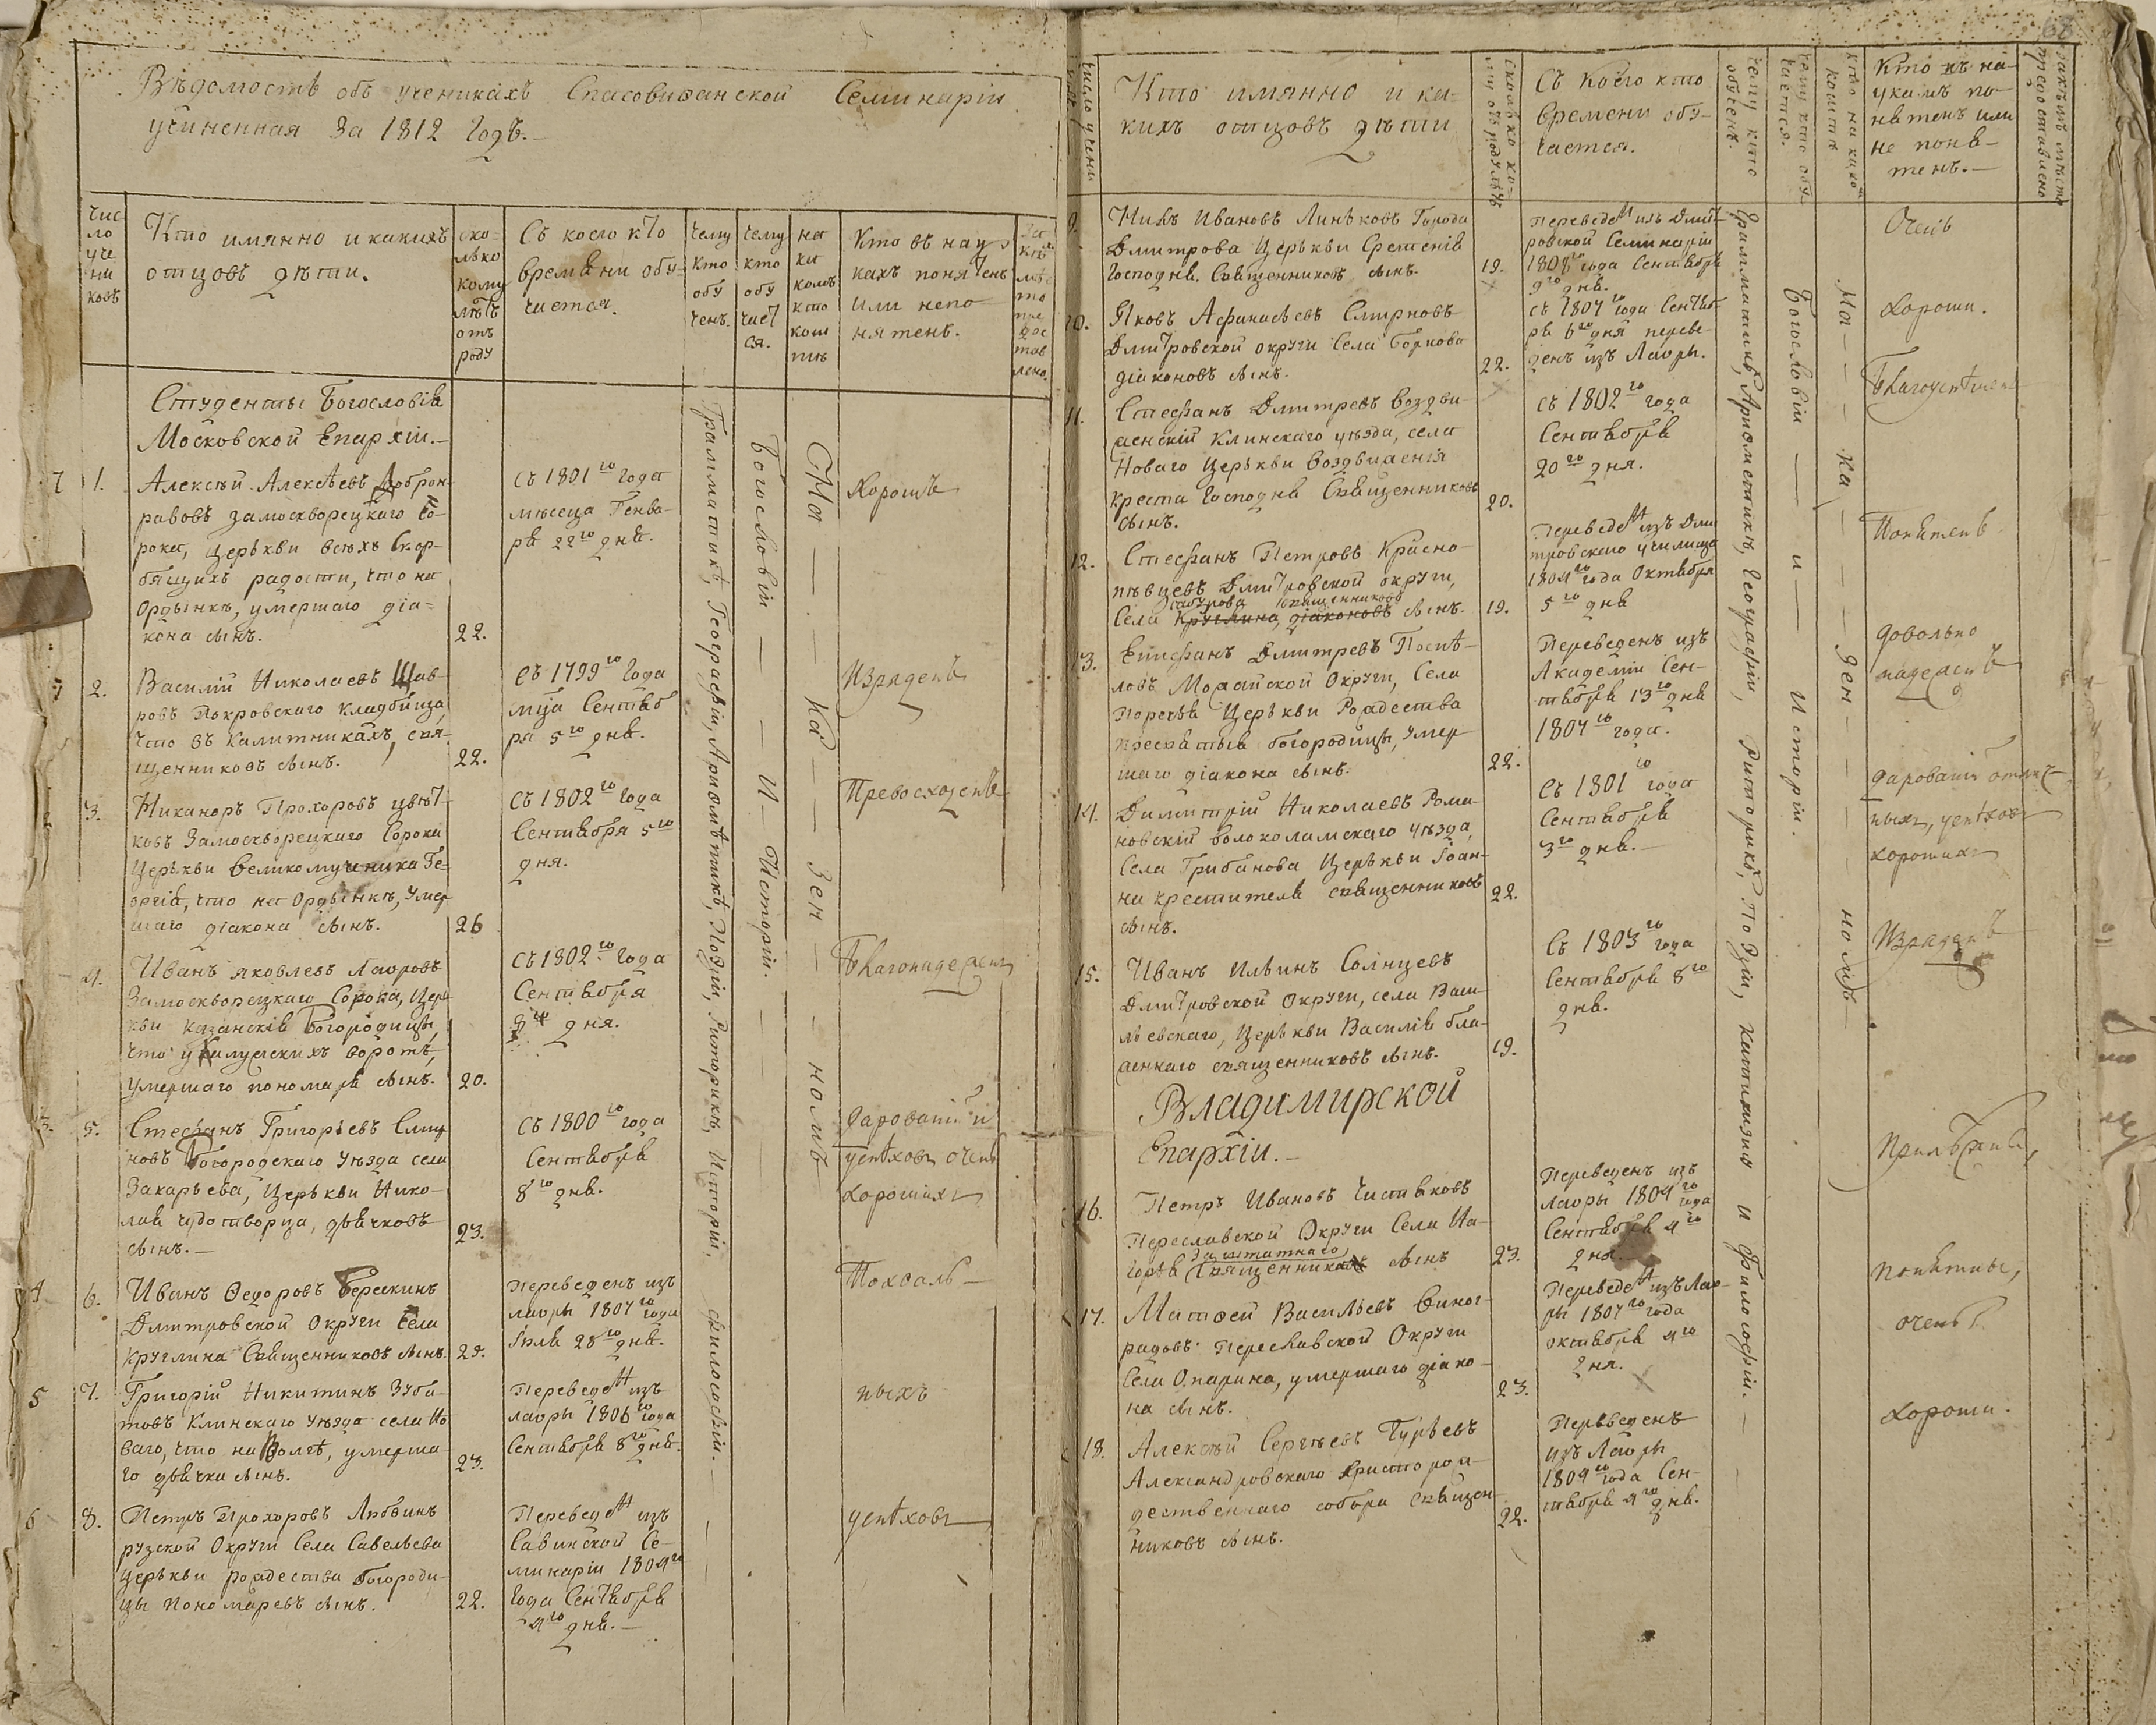 Вѣдомость объ ученикахъ Спасовиѳанской Семинаріи
учиненная За 1812 Годъ.
Чис
ло
уче
ни
ковъ
Кто имянно и какихъ
отцовъ дѣти.
ско-
лько
кому
лѣтъ
отъ
роду
Съ коего кто
времѣни обу-
чается.
Чему
кто
обу
ченъ.
Чему
кто
обу
чает
ся.
на
ка
комъ
кто
кош
тѣ
Кто въ нау-
кахъ понятенъ
или непо-
нятенъ.
Студенты Богословія
Московской Епархіи.
1. Алексѣй Алексѣевъ Доброн-
равовъ замоскворецкаго со-
рока, Церькви всѣхъ Скор-
бящихъ радости, что на
Ордынкѣ, умершаго діа-
кона сынъ. 22.
съ 1801го года
мѣсеца Генва-
ря 22го дня.
Хорошъ
2. Василій Николаевъ Шав-
ровъ Покровскаго Кладбища,
что въ Калитникахъ, свя-
щенниковъ сынъ. 22.
съ 1799го года
мца Сентяб
ря 5го дня.
Изряденъ
3. Никаноръ Прохоровъ цвѣт-
ковъ Замоскворецкаго Сорока
Церькви великомученика Ге-
оргія, что на Ордынкѣ, умер
шаго діакона сынъ. 26
съ 1802го года
Сентября 5го
дня.
Превосходенъ
4. Иванъ яковлевъ Лавровъ
Замоскворецкаго Сорока, Цер
кви казанскія Богородицы,
что у Калужскихъ воротъ,
умершаго пономаря сынъ. 20.
съ 1802го года
Сентября
дня.
Благонадеженъ
5. Стефанъ Григорьевъ Смир
новъ Богородскаго уѣзда села
Захарьева, Церькви Нико-
лая чудотворца, дьячковъ
сынъ. 23.
съ 1800го года
Сентября
8го дня.
Дарованій и
успѣховъ очень
хорошихъ
6. Иванъ Ѳедоровъ Березкинъ
Дмитровской Округи Села
Круглина Священниковъ сынъ. 23.
Переведенъ изъ
лавры 1807го года
Іюля 28го дня.
Похваль-
7. Григорій Никитинъ Зуба-
товъ Клинскаго уѣзда села Но
ваго, что на Волгѣ, умерша-
го дьячка сынъ. 23.
Переведен изъ
лавры 1806го года
Сентября 8го дня.
ныхъ
8. Петръ Прохоровъ Любвинъ
рузской Округи Села Савельева
Церькви рождества Богороди-
цы пономаревъ сынъ. 22.
Переведен изъ
Савинской Се-
минаріи 1804го
года Сентября
4го дня.
успѣховъ
Грамматикѣ, Географіи, Ариѳметикѣ, Поэзіи, Риторикѣ, Исторіи, философіи.
Богословіи и Исторіи.
На ка зен номъ
Число учени
Кто имянно и ка-
кихъ отцовъ дѣти
сколько ко-
му отъ роду лѣтъ
Съ коего кто
времени обу-
чается.
Чему кто
обученъ.
Чему кто обу
чается.
кто на како
коштѣ
Кто къ на-
укамъ по-
нятенъ или
не поня-
тенъ.
9. Никъ Ивановъ Линьковъ города
Дмитрова Церькви Срѣтенія
Господня. Священниковъ сынъ. 19.
Переведен изъ Дмит
ровской Семинаріи
1808го года Сентября
9го дня.
Очень
10. Яковъ Аѳанасьевъ Смирновъ
Дмитровской округи Села Борнова
діаконовъ сынъ. 22.
съ 1807го года Сентяб
ря 6го дня переве-
денъ изъ Лавры.
Хороши.
11. Стефанъ Дмитревъ Воздви-
женскій Клинскаго уѣзда, села
Новаго Церькви Воздвиженія
креста Господня Священниковъ
сынъ. 20.
съ 1802го года
Сентября
20го дня.
Благоуспѣшенъ
12. Стефанъ Петровъ Красно-
пѣвцевъ Дмитровской округи,
священниковъ
Села Круглина діаконовъ сынъ. 19.
Переведен изъ Дми
тровскаго училища
1804го года Октября
5го дня
Понятенъ
13. Епифанъ Дмитревъ Поспѣ-
ловъ Можайской Округи, Села
Поречья Церькви Рождества
пресвятыя богородицы, умер
шаго діакона сынъ. 22.
Переведенъ изъ
Академіи Сен-
тября 13го дня
1807го года.
Довольно
надеженъ
14. Димитрій Николаевъ Рома-
новскій волоколамскаго уѣзда,
Села Грибанова Церькви Іоан-
на крестителя священниковъ
сынъ. 22.
съ 1801го года
Сентября
3го дня.
дарованій отлич-
ныхъ, успѣховъ
хорошихъ
15. Иванъ Ильинъ Солнцевъ
Дмитровской Округи, села Васи-
льевскаго, Церькви Василія бла-
женнаго священниковъ сынъ. 19.
съ 1803го года
Сентября 8го
дня.
Изряденъ
Владимирской
Епархіи.
16. Петръ Ивановъ Чистяковъ
Переславской Округи Села На-
заштатнаго
горья Священника сынъ 23.
Переведенъ изъ
лавры 1804го года
Сентября 4го
дня.
Прилѣженъ,
17. Матѳей Васильевъ Виног-
радовъ Переславской Округи
Села Опарина, умершаго діако-
на сынъ. 23.
Переведен изъ Лав-
ры 1807го года
октября 4го
дня.
понятны,
очень
18. Алексѣй Сергѣевъ Гурьевъ
Александровскаго Христорож-
дественскаго собора Священ-
никовъ сынъ. 22.
Переведенъ
изъ Лавры
1804го года Сен-
тября 4го дня.
хороши.
Грамматикѣ, Ариѳметикѣ, Географіи, Риторикѣ, Поэзіи, катихизиз и Философіи.
Богословіи и Исторіи.
На ка зен номъ